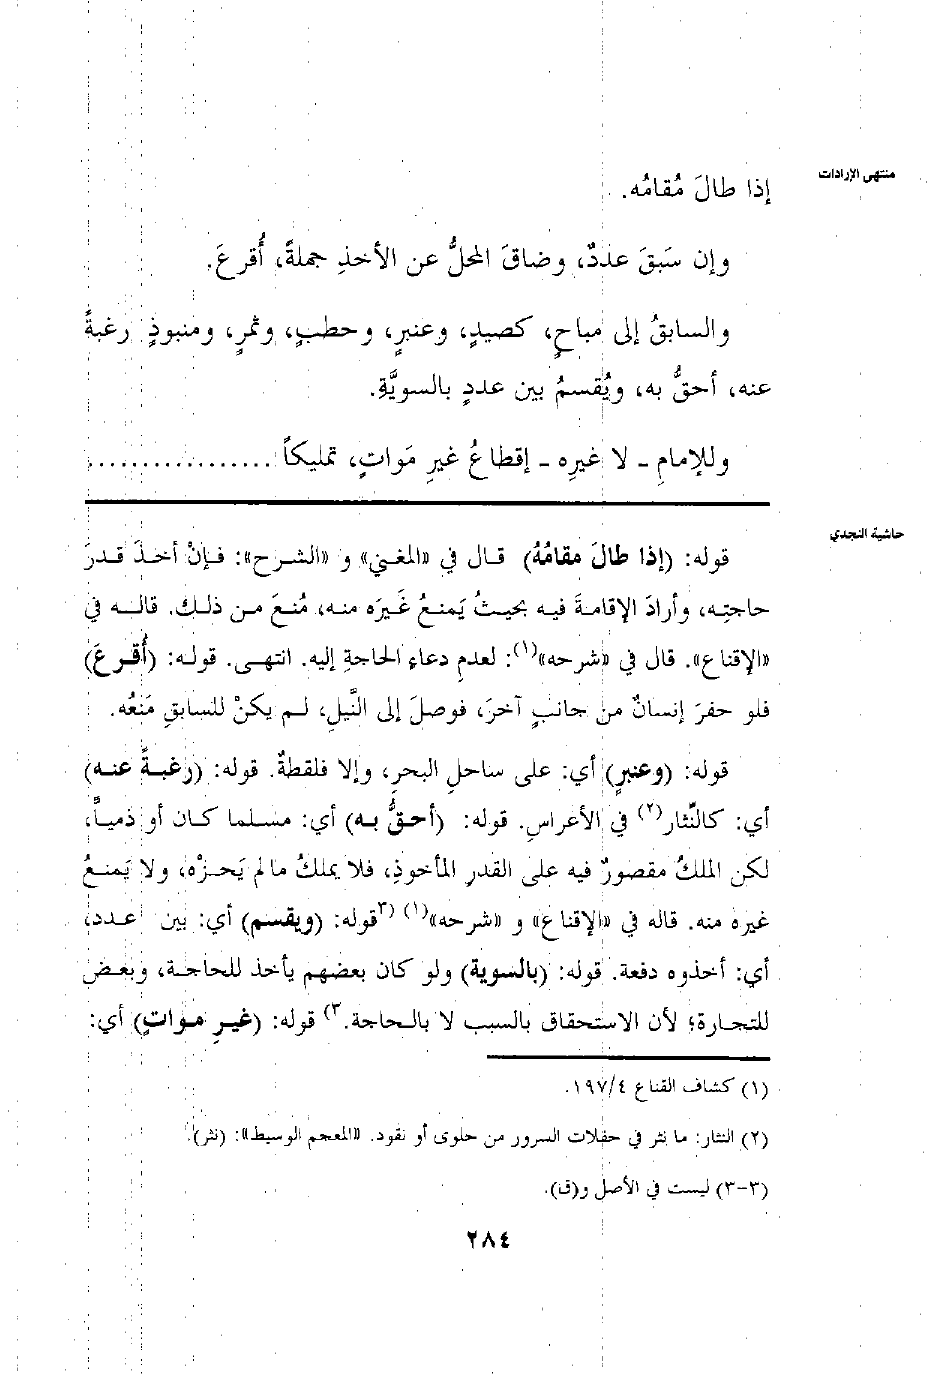 منتهى الإرادات
إذا طالَ مُقامُه.
وإن سَبقَ عددٌ، وضاقَ المحلُّ عن الأخذِ جملةً، أُقرعَ.
والسابقُ إلى مباحٍ، كصيدٍ، وعنبرٍ، وحطبٍ، وثمرٍ، ومنبوذٍ رغبةً
عنه، أحقُّ به، ويُقسمُ بين عددٍ بالسويَّةِ.
وللإمامِ ـ لا غيرِه ـ إقطاعُ غيرِ مَواتٍ، تمليكاً .................
حاشية النجدي
قوله: (إذا طالَ مقامُهُ) قال في «المغني» و «الشرح»: فإنْ أخذَ قدرَ
حاجتِه، وأرادَ الإقامةَ فيه بحيثُ يَمنعُ غَيرَه منه، مُنعَ من ذلك. قاله في
«الإقناع». قال في «شرحه»(١): لعدمِ دعاءِ الحاجةِ إليه. انتهى. قوله: (أُقرعَ)
فلو حفرَ إنسانٌ من جانبٍ آخرَ، فوصلَ إلى النَّيلِ، لم يكنْ للسابقِ مَنعُه.
قوله: (وعنبرٍ) أي: على ساحلِ البحرِ، وإلا فلقطةٌ. قوله: (رغبةً عنه)
أي: كالنِّثار(٢) في الأعراسِ. قوله: (أحقُّ به) أي: مسلما كان أو ذمياً،
لكن الملكُ مقصورٌ فيه على القدرِ المأخوذِ، فلا يملكُ مالم يَحزْه، ولا يَمنعُ
غيره منه. قاله في «الإقناع» و «شرحه»(١) (٣قوله: (ويقسم) أي: بين عدد،
أي: أخذوه دفعة. قوله: (بالسوية) ولو كان بعضهم يأخذ للحاجة، وبعض
للتجارة؛ لأن الاستحقاق بالسبب لا بالحاجة.٣) قوله: (غيرِ مواتٍ) أي:
(١) كشاف القناع ١٩٧/٤.
(٢) النثار: ما نثر في حفلات السرور من حلوى أو نقود. «المعجم الوسيط»: (نثر).
(٣-٣) ليست في الأصل و(ق).
٢٨٤